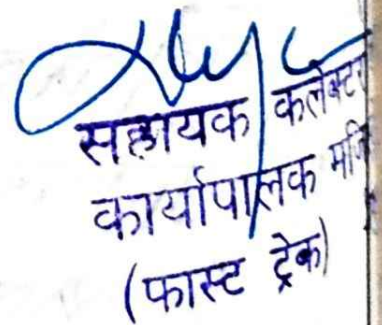 सहायक कलेक्टर
कार्यापालक
(फास्ट ट्रेक)